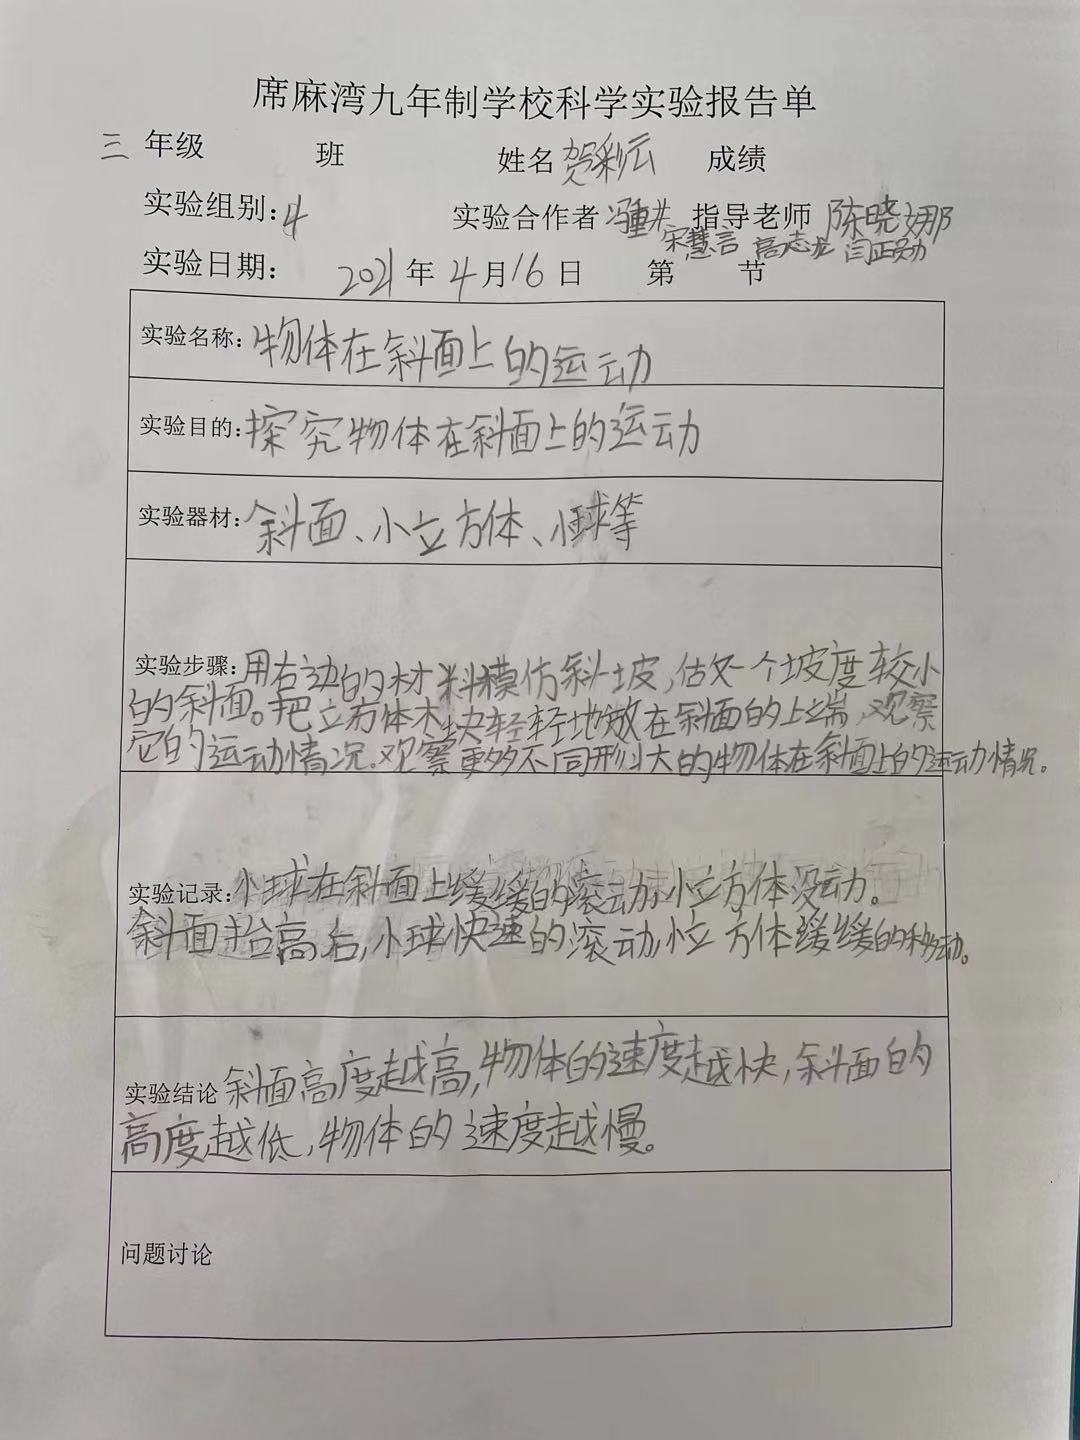 席麻湾九年制学校科学实验报告单
三 年级 班 姓名 贺彩云 成绩
实验组别:4 实验合作者 冯 指导老师 陈晓娜
宋慧言 高志龙 闫正勋
实验日期: 2021年4月16日 第 节
实验名称:物体在斜面上的运动
实验目的:探究物体在斜面上的运动
实验器材:斜面、小立方体、小球等
实验步骤:用右边的材料模仿斜坡,估好一个坡度较小
的斜面。把立方体木块轻轻地放在斜面的上端,观察
它的运动情况.观察更多不同形状大的物体在斜面上的运动情况。
实验记录:小球在斜面上缓缓的滚动,小立方体没动。
斜面抬高后,小球快速的滚动,小立方体缓缓的移动。
实验结论 斜面高度越高,物体的速度越快,斜面的
高度越低,物体的速度越慢。
问题讨论